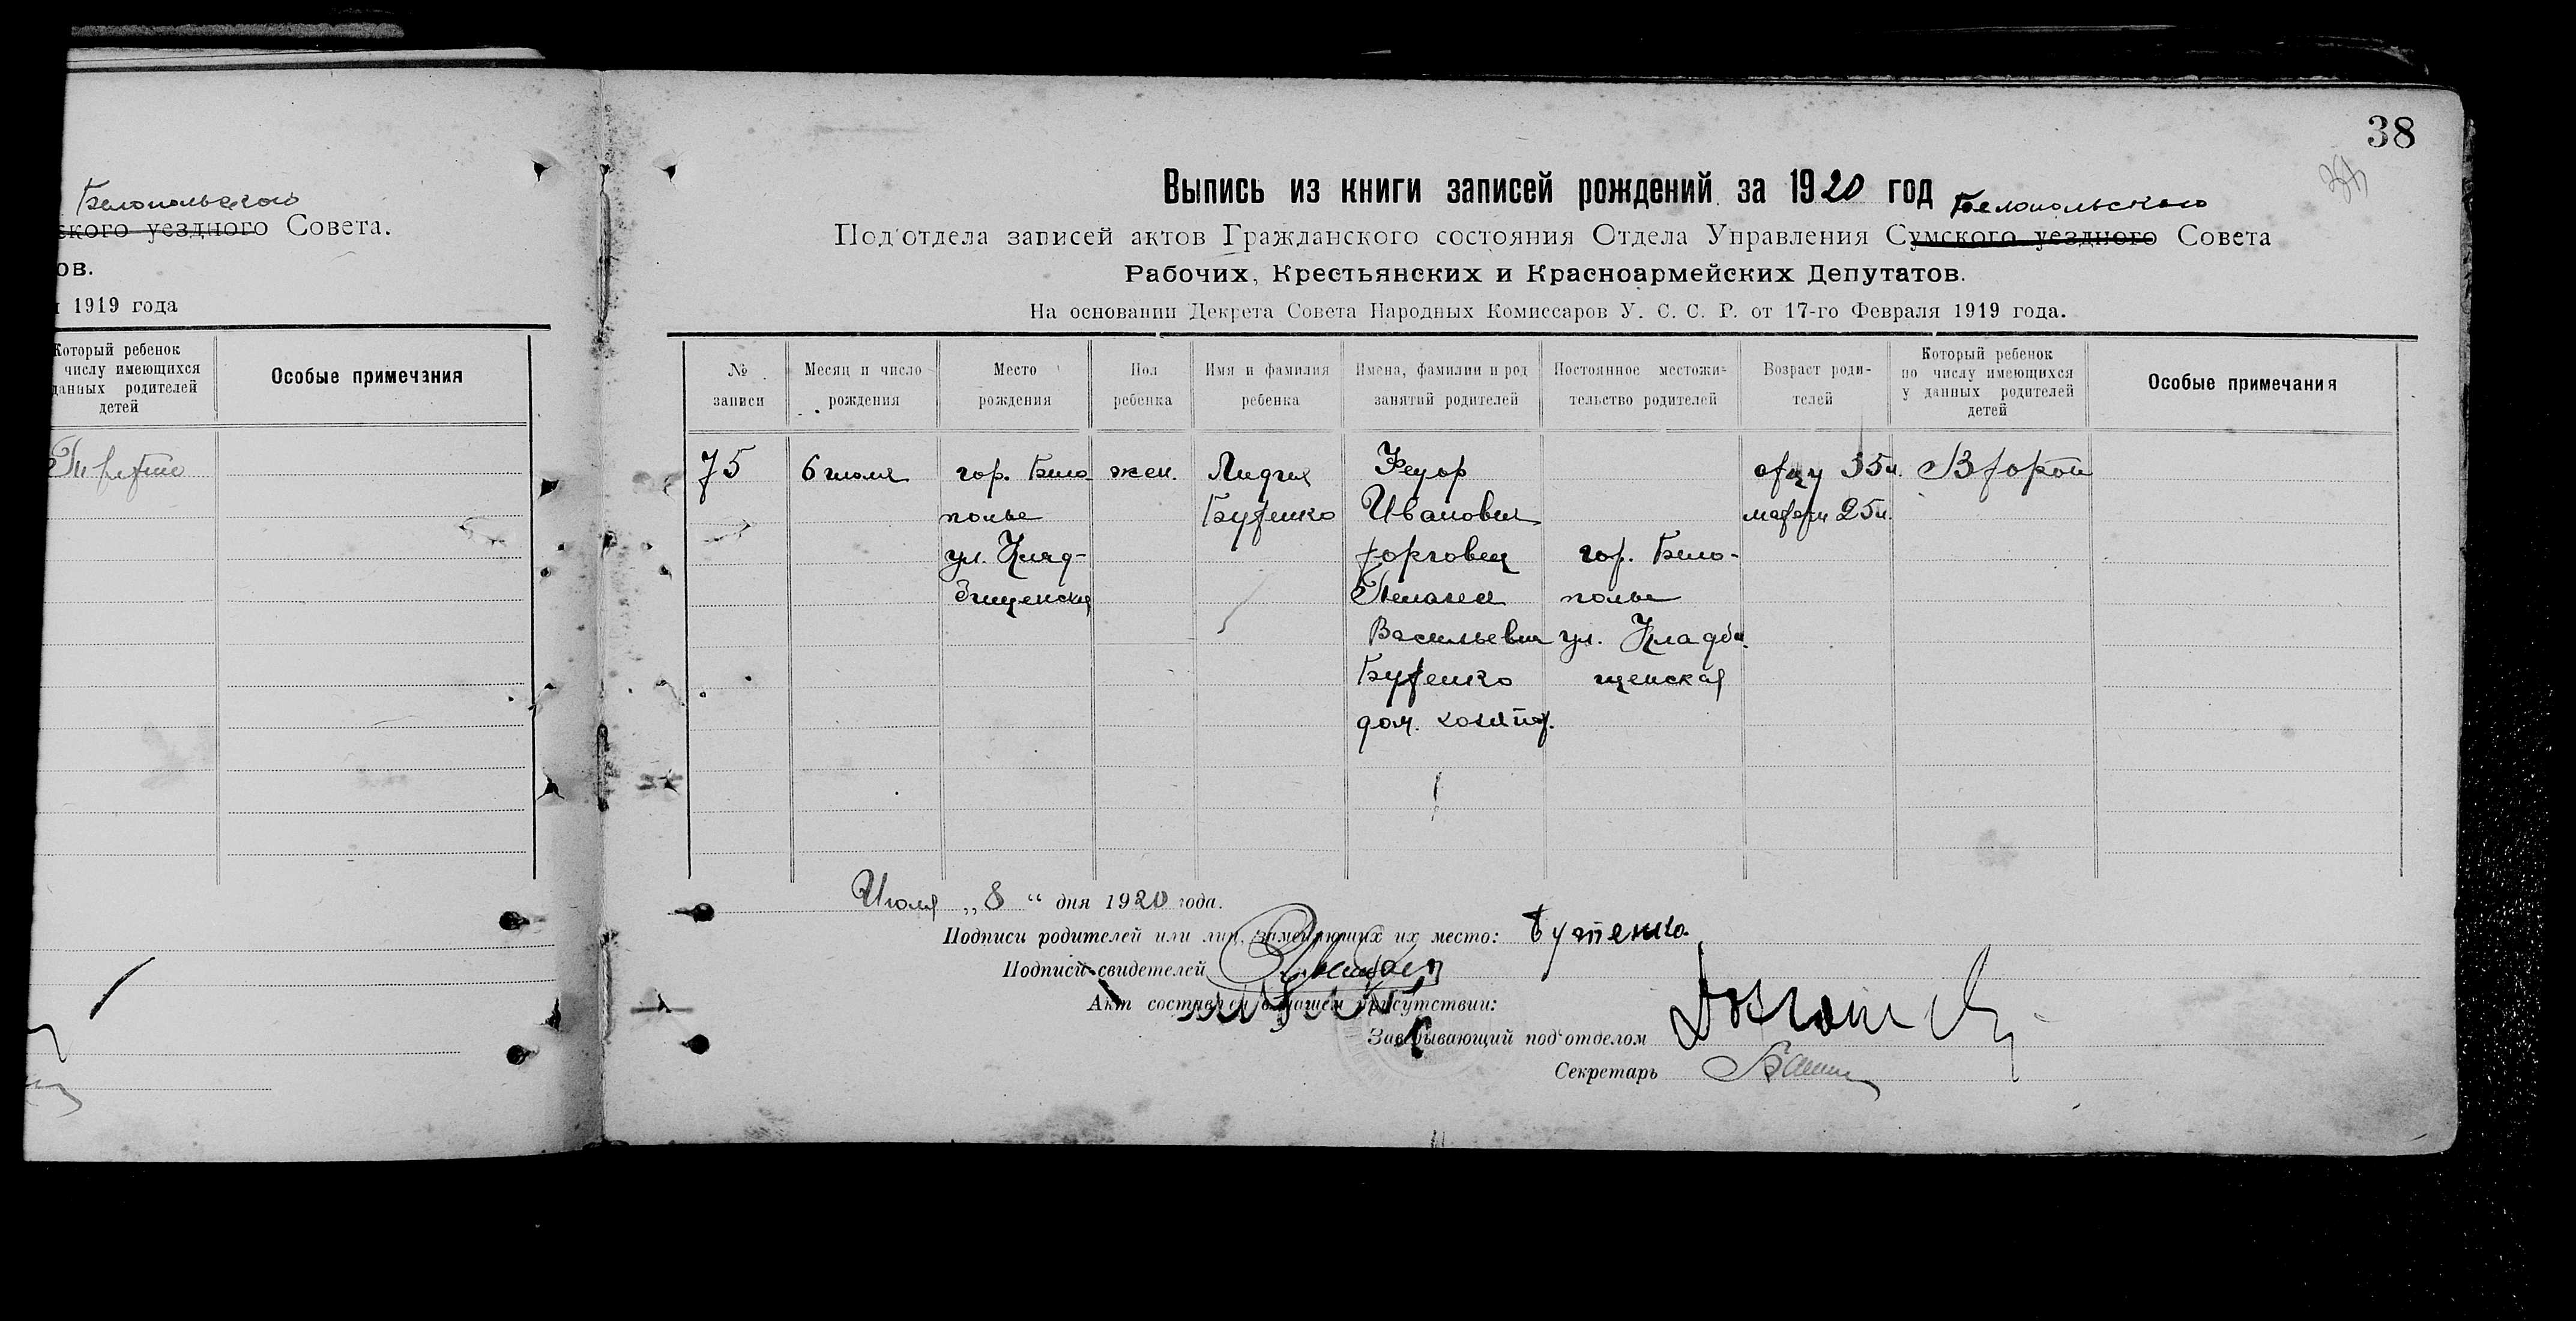 Белопольского
ского уездного Совета.
ов.
1919 года
Который ребенок
числу имеющихся
данных родителей
детей
Особые примечания
38
Выпись из книги записей рождений за 1920 год
Белопольского
Под'отдела записей актов Гражданского состояния Отдела Управления Сумского уездного Совета
Рабочих, Крестьянских и Красноармейских Депутатов.
На основании Декрета Совета Народных Комиссаров У. С. С. Р. от 17-го Февраля 1919 года.
№
записи
Месяц и число
рождения
Место
рождения
Пол
ребенка
Имя и фамилия
ребенка
Имена, фамилии и род
занятий родителей
Постоянное местожи-
тельство родителей
Возраст роди-
телей
Который ребенок
по числу имеющихся
у данных родителей
детей
Особые примечания
75
6 июля
гор. Бело
полье
ул. Клад-
бищенская
жен.
Лидия
Бутенко
Федор
Иванович
торговец
Пелагея
Васильевна
Бутенко
дом. хозяйка
гор. Бело-
полье
ул. Кладби
щенская
отцу 35 л.
матери 25 л.
Второй
Июля „8“ дня 1920 года.
Подписи родителей или лиц, заменяющих их место: Бутенко
Подписи свидетелей
Акт составлен в нашем присутствии:
Заведывающий под'отделом
Секретарь